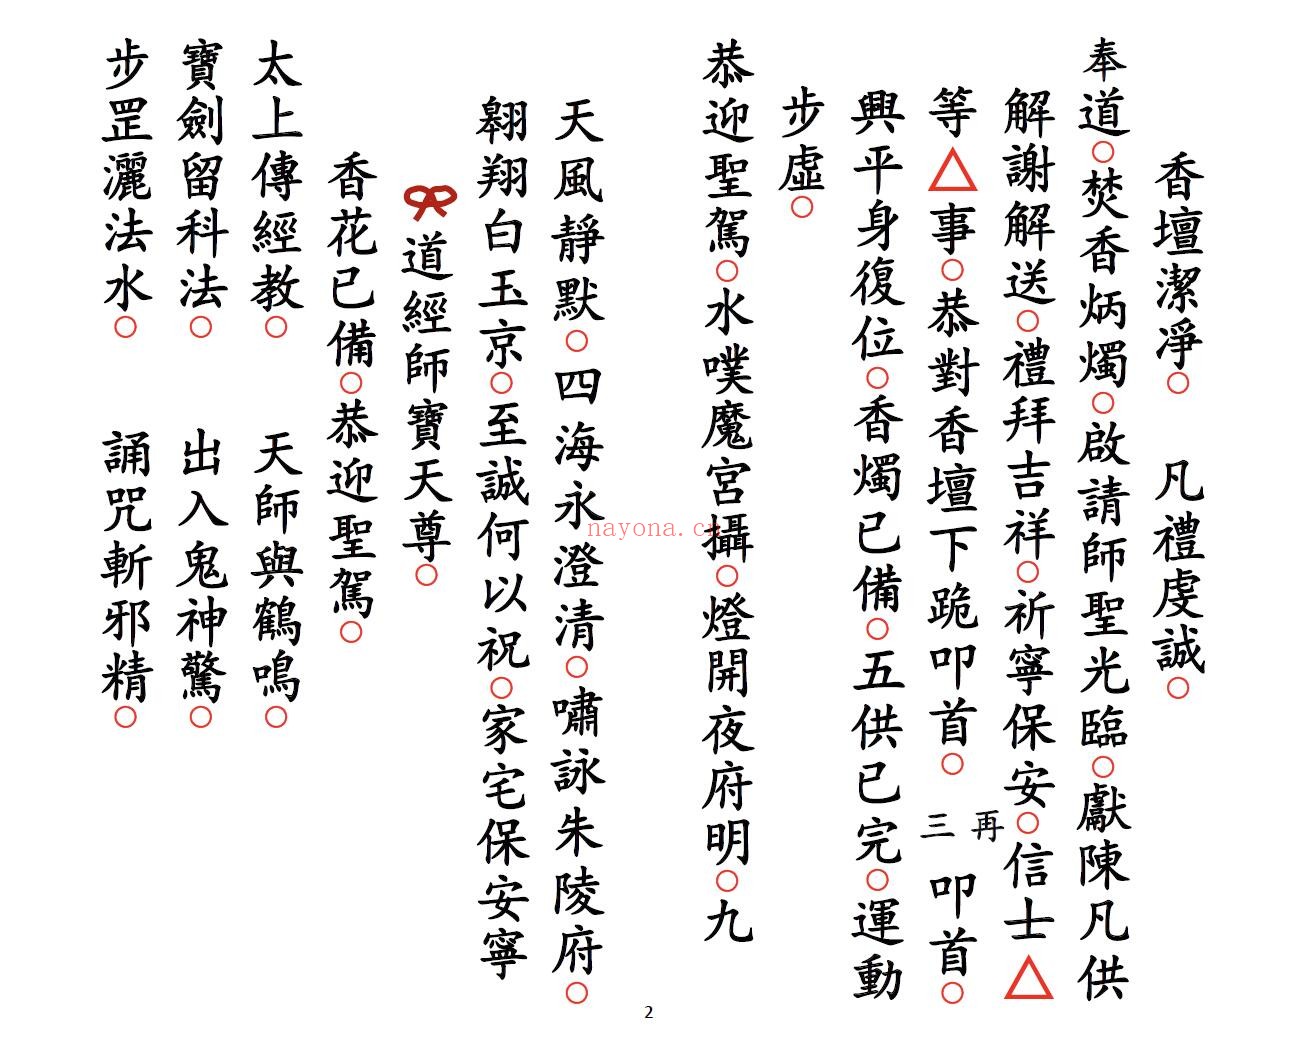 香壇潔淨○ 凡禮虔誠○
奉道○焚香炳燭○啟請師聖光臨○獻陳凡供
解謝解送○禮拜吉祥○祈寧保安○信士△
等△事○恭對香壇下跪叩首○再三叩首○
興平身復位○香燭已備○五供已完○運動
步虛○
恭迎聖駕○水噗魔宮攝○燈開夜府明○九
天風靜默○四海永澄清○嘯詠朱陵府○
翱翔白玉京○至誠何以祝○家宅保安寧
道經師寶天尊○
香花已備○恭迎聖駕○
太上傳經教○ 天師與鶴鳴○
寶劍留科法○ 出入鬼神驚○
步罡灑法水○ 誦咒斬邪精○
2
nayona.cn